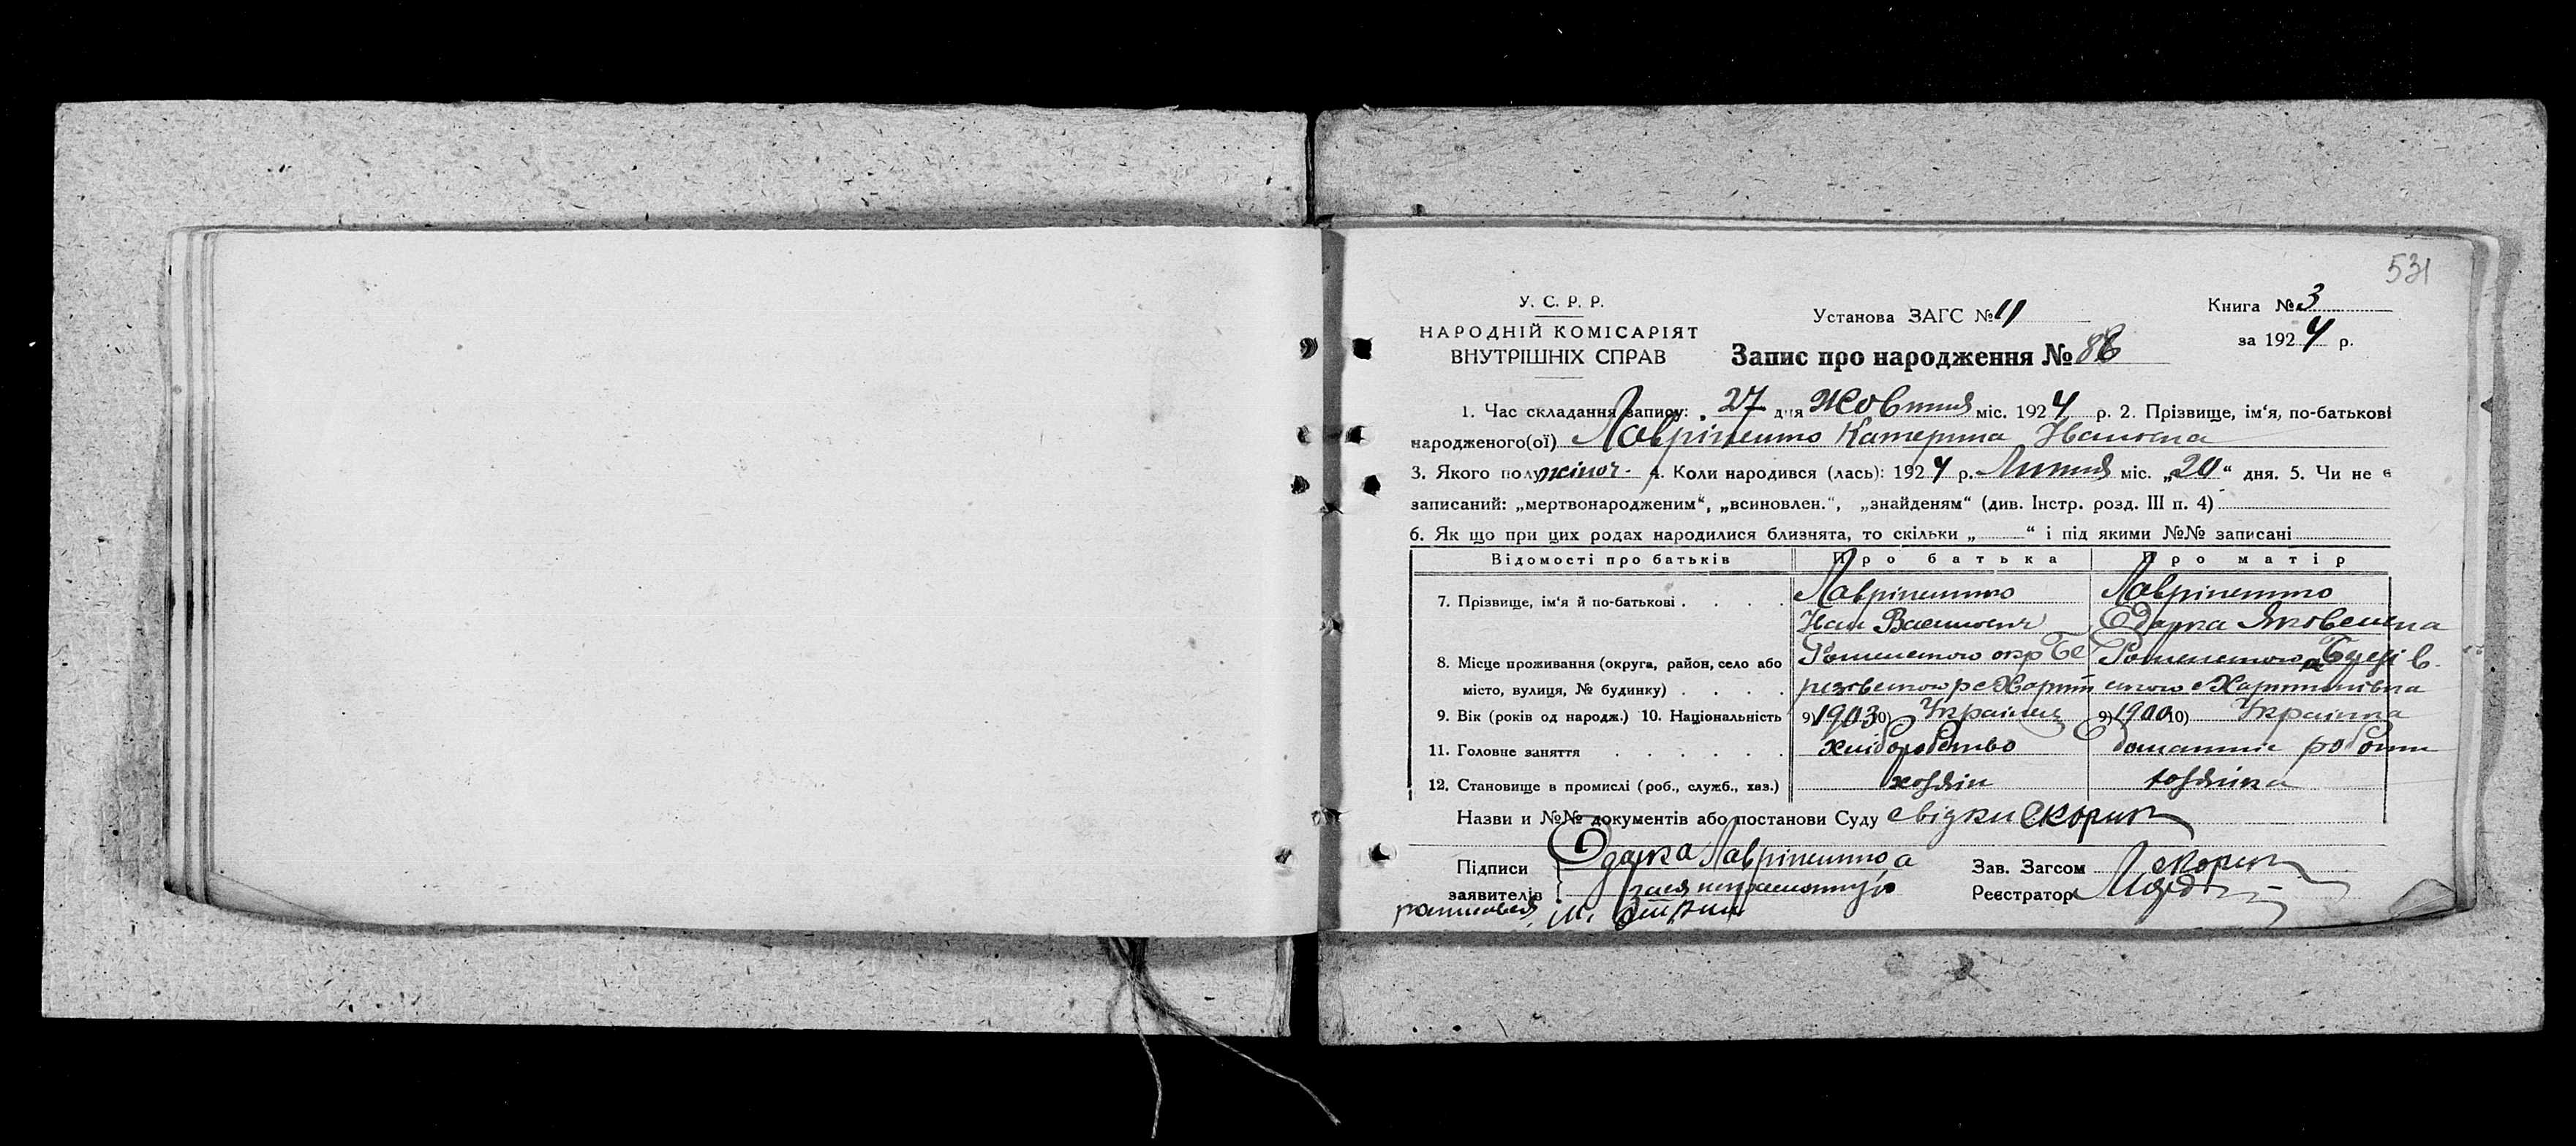 531
У. С. Р. Р.
НАРОДНІЙ КОМІСАРІЯТ
ВНУТРІШНІХ СПРАВ
Установа ЗАГС № 11
Запис про народження № 88
Книга № 3
за 1924 р.
1. Час складання запису: 27 дня Жовтня міс. 1924 р. 2. Прізвище, ім'я, по-батькові
народженого(ої) Лавріненко Катерина Івановна
3. Якого полу жіноч. 4. Коли народився (лась): 1924 р. Липня міс. „20“ дня. 5. Чи не є
записаний: „мертвонародженим“, „всиновлен.“, „знайденям“ (див. Інстр. розд. III п. 4)
6. Як що при цих родах народилися близнята, то скільки „ “ і під якими №№ записані
Відомості про батьків Про батька Про матір
7. Прізвище, ім'я й по-батькові . . . . Лавріненко Лавріненко
Іван Васильович Одарка Яковлевна
8. Місце проживання (округа, район, село або Роменського окр Бе Роменського
місто, вулиця, № будинку) . . . .
9. Вік (років од народж.) 10. Національність 9) 1903 10) Українец 9) 1900 10) Українка
11. Головне заняття . . . . . . хліборобство домашні роботи
12. Становище в промислі (роб., служб., хаз.) хозяін хозяіка
Назви и №№ документів або постанови Суду свідки Скорик
Підписи Одарка Лавріненко, а
заявителів } за неї неграмотную
росписався
Зав. Загсом Скорик
Реєстратор